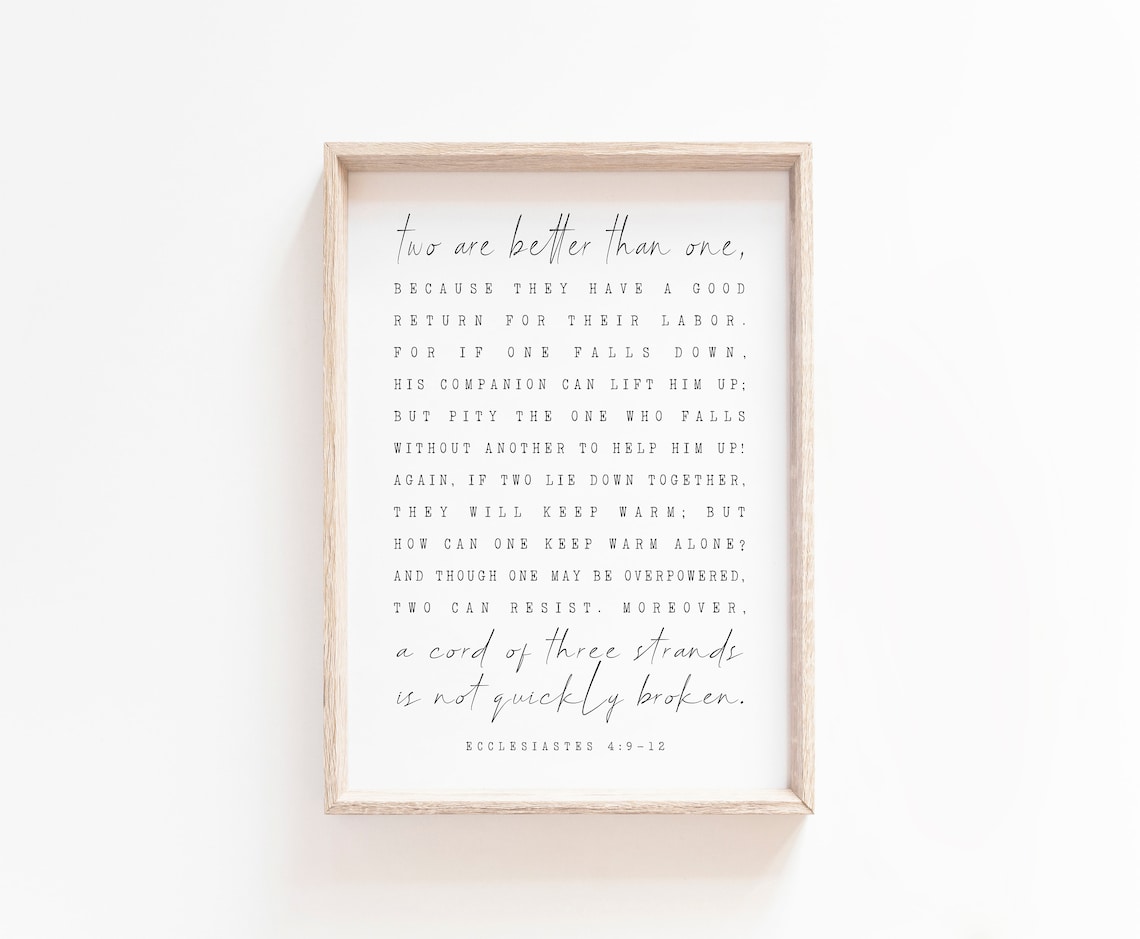 two are better than one,
BECAUSE THEY HAVE A GOOD
RETURN FOR THEIR LABOR.
FOR IF ONE FALLS DOWN,
HIS COMPANION CAN LIFT HIM UP;
BUT PITY THE ONE WHO FALLS
WITHOUT ANOTHER TO HELP HIM UP!
AGAIN, IF TWO LIE DOWN TOGETHER,
THEY WILL KEEP WARM; BUT
HOW CAN ONE KEEP WARM ALONE?
AND THOUGH ONE MAY BE OVERPOWERED,
TWO CAN RESIST. MOREOVER,
a cord of three strands
is not quickly broken.
ECCLESIASTES 4:9-12